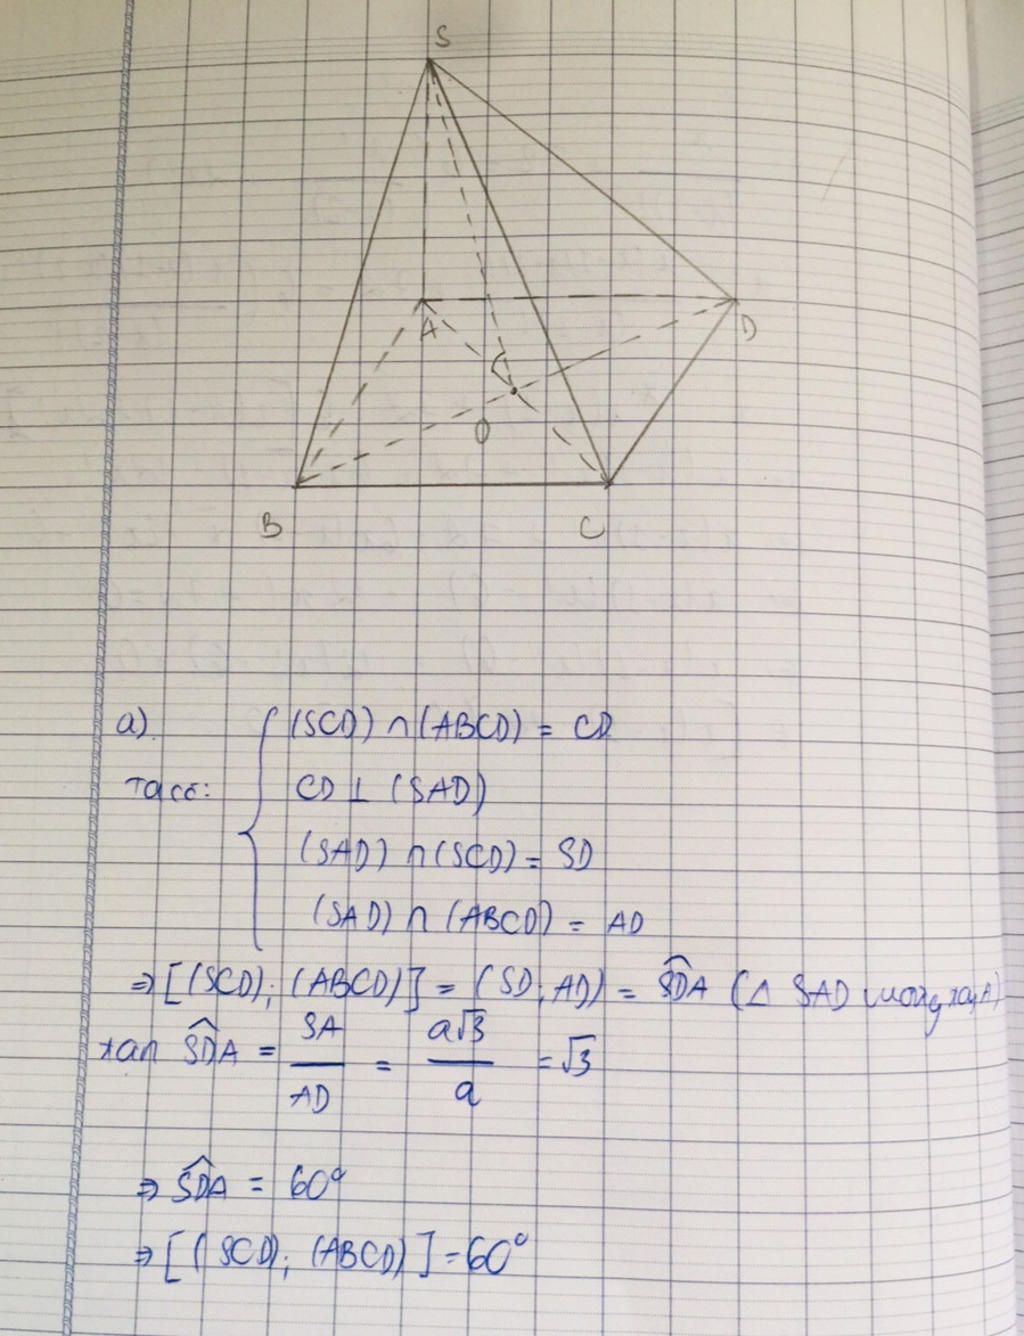 S
A
D
O
B
C
a) (SCD) ∩ (ABCD) = CD
Ta có: CD ⊥ (SAD)
(SAD) ∩ (SCD) = SD
(SAD) ∩ (ABCD) = AD
⇒ [(SCD); (ABCD)] = (SD; AD) = $\widehat{SDA}$ (△ SAD vuông tại A)
tan $\widehat{SDA}$ = $\frac{SA}{AD}$ = $\frac{a\sqrt{3}}{a}$ = $\sqrt{3}$
⇒ $\widehat{SDA}$ = 60°
⇒ [(SCD); (ABCD)] = 60°